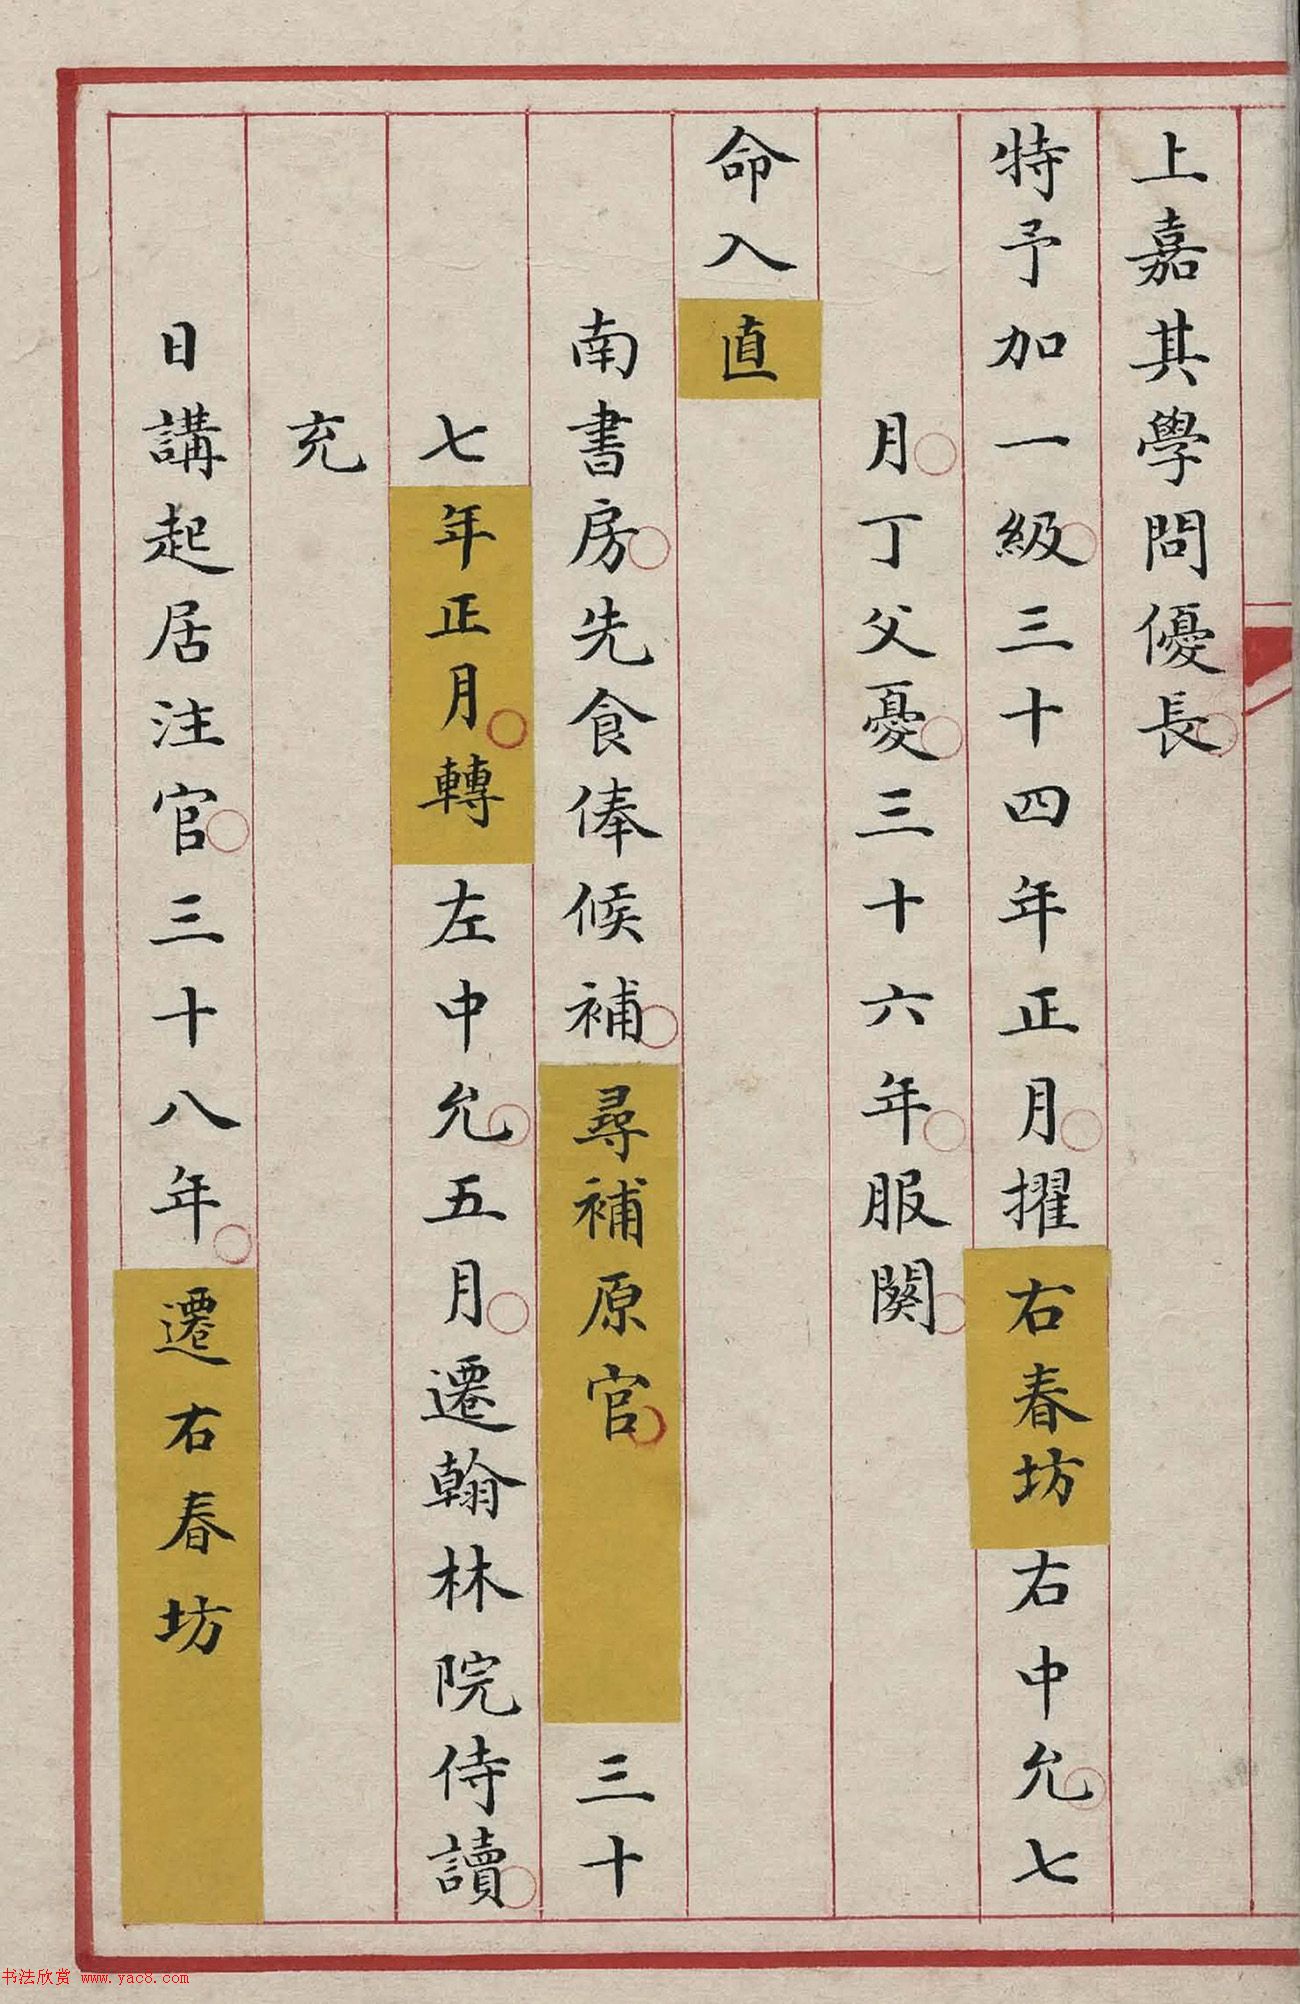 上嘉其學問優長
特予加一級三十四年正月擢右春坊右中允七
月丁父憂三十六年服闋
命入直
南書房先食俸候補尋補原官三十
七年正月轉左中允五月遷翰林院侍讀
充
日講起居注官三十八年遷右春坊
书法欣赏 www.yac8.com